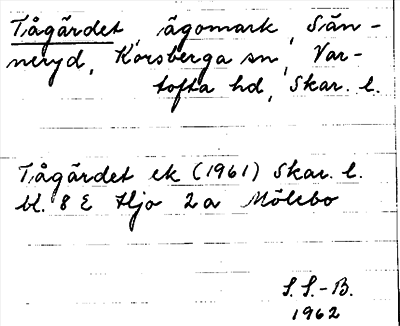 Tågärdet, ägomark, Sän-
neryd, Korsberga sn, Var-
tofta hd, Skar. l.
Tågärdet ek (1961) Skar. l.
bl. 8 E Hjo 2a Mölebo
S.S.-B.
1962